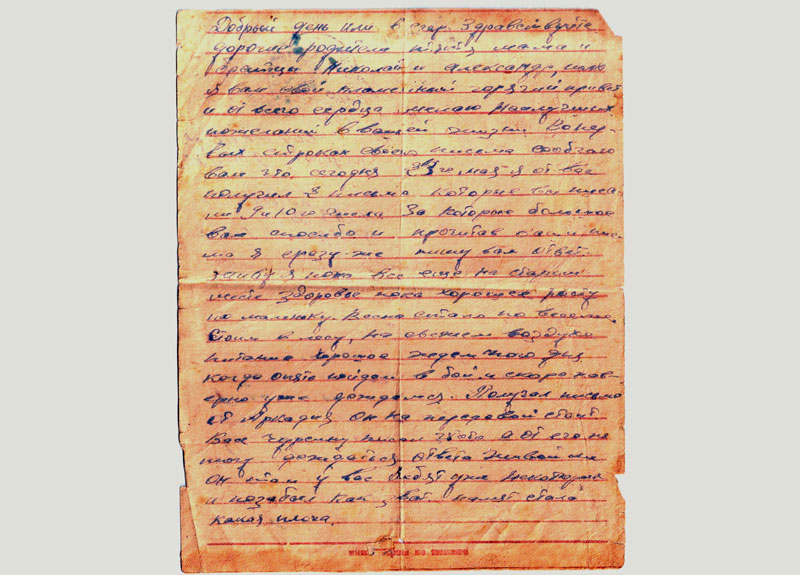 Добрый день или вечер. Здравствуйте
дорогие родители мама и
братцы Николай и Александр, шлю
я вам свой пламенный горячий привет
и от всего сердца желаю наилучших
пожеланий в вашей жизни. Во пер-
вых строках своего письма сообщаю
вам что сегодня мая я от вас
получил 2 письма которые вы писа-
ли 9 и 10го числа за которые большое
вам спасибо и прочитав ваши пис-
ма я сразу же пишу вам ответ.
живу я пока все еще на старом
месте здоровье пока хорошее расту
по маленьку. Весна стало по веселее.
Стоим в лесу, на свежем воздухе
питание хорошое ждем того дня
когда опять пойдем в бой и скоро нав-
ерно уже дождемся. Получал письмо
от Аркадия он на передовой стоит
Васе писал а от его не
могу дождаться ответа живой ли
он там у вас уже некоторых
и позабыл как зват. памят стала
какая плоха.